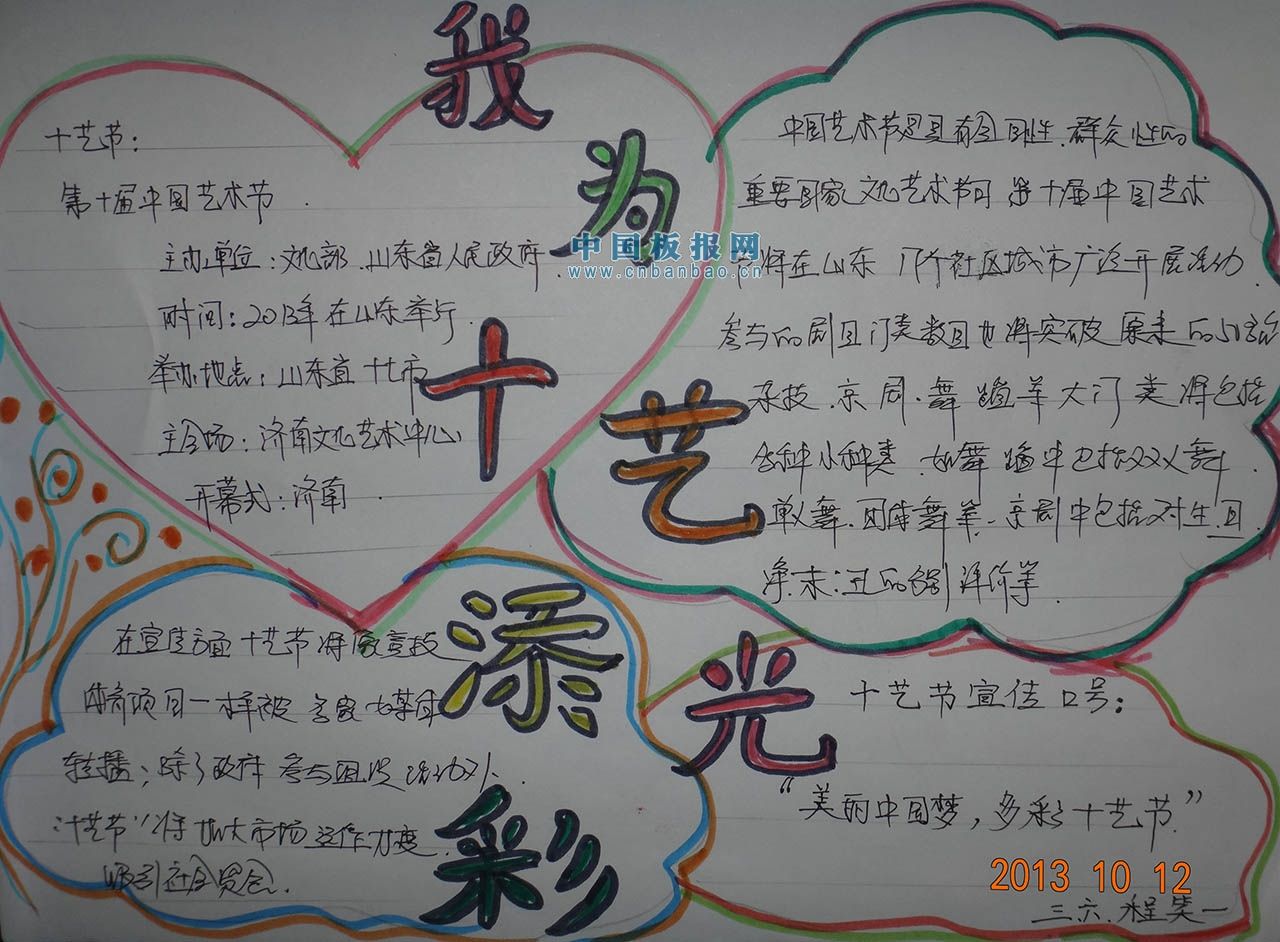 我为十艺添光彩
十艺节：
第十届中国艺术节．
主办单位：文化部．山东省人民政府
时间：2013年在山东举行．
举办地点：山东省十七市
主会场：济南文化艺术中心
开幕式：济南．
中国艺术节是具有全国性．群众性的
重要国家文化艺术节日 第十届中国艺术
将在山东 社区城市广泛开展活动．
参与的剧目门类数目也将突破原来的
杂技．京剧．舞蹈等大门类将包括
各种小种类．如舞蹈中包括双人舞．
单人舞．团体舞等．京剧中包括对生．旦．
净．末．丑的 评价等．
在宣传方面十艺节将像竞技
体育项目一样被多家媒体
转播；除了政府参与组织活动外．
“十艺节”将加大市场运作力度．
吸引社会资金．
十艺节宣传口号：
“美丽中国梦，多彩十艺节”
2013 10 12
三六．程笑一
中国板报网
www.cnbanbao.cn